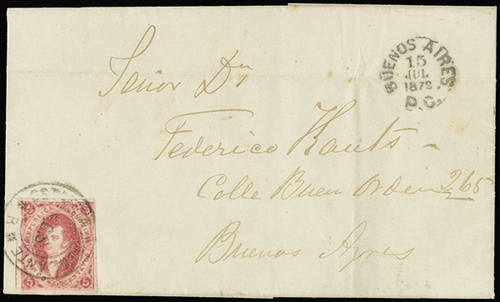 BUENOS AIRES
15
JUL
1872
P.C.
Señor Dn
Federico
Calle Buen Orden 265
Buenos Ayres
5 5